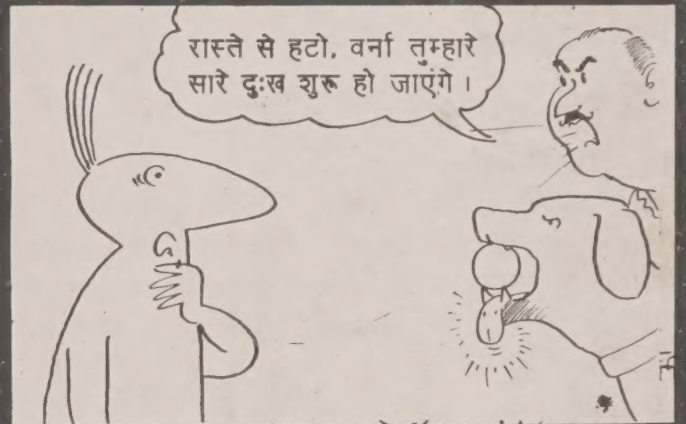 रास्ते से हटो, वर्ना तुम्हारे
सारे दुःख शुरू हो जाएंगे ।